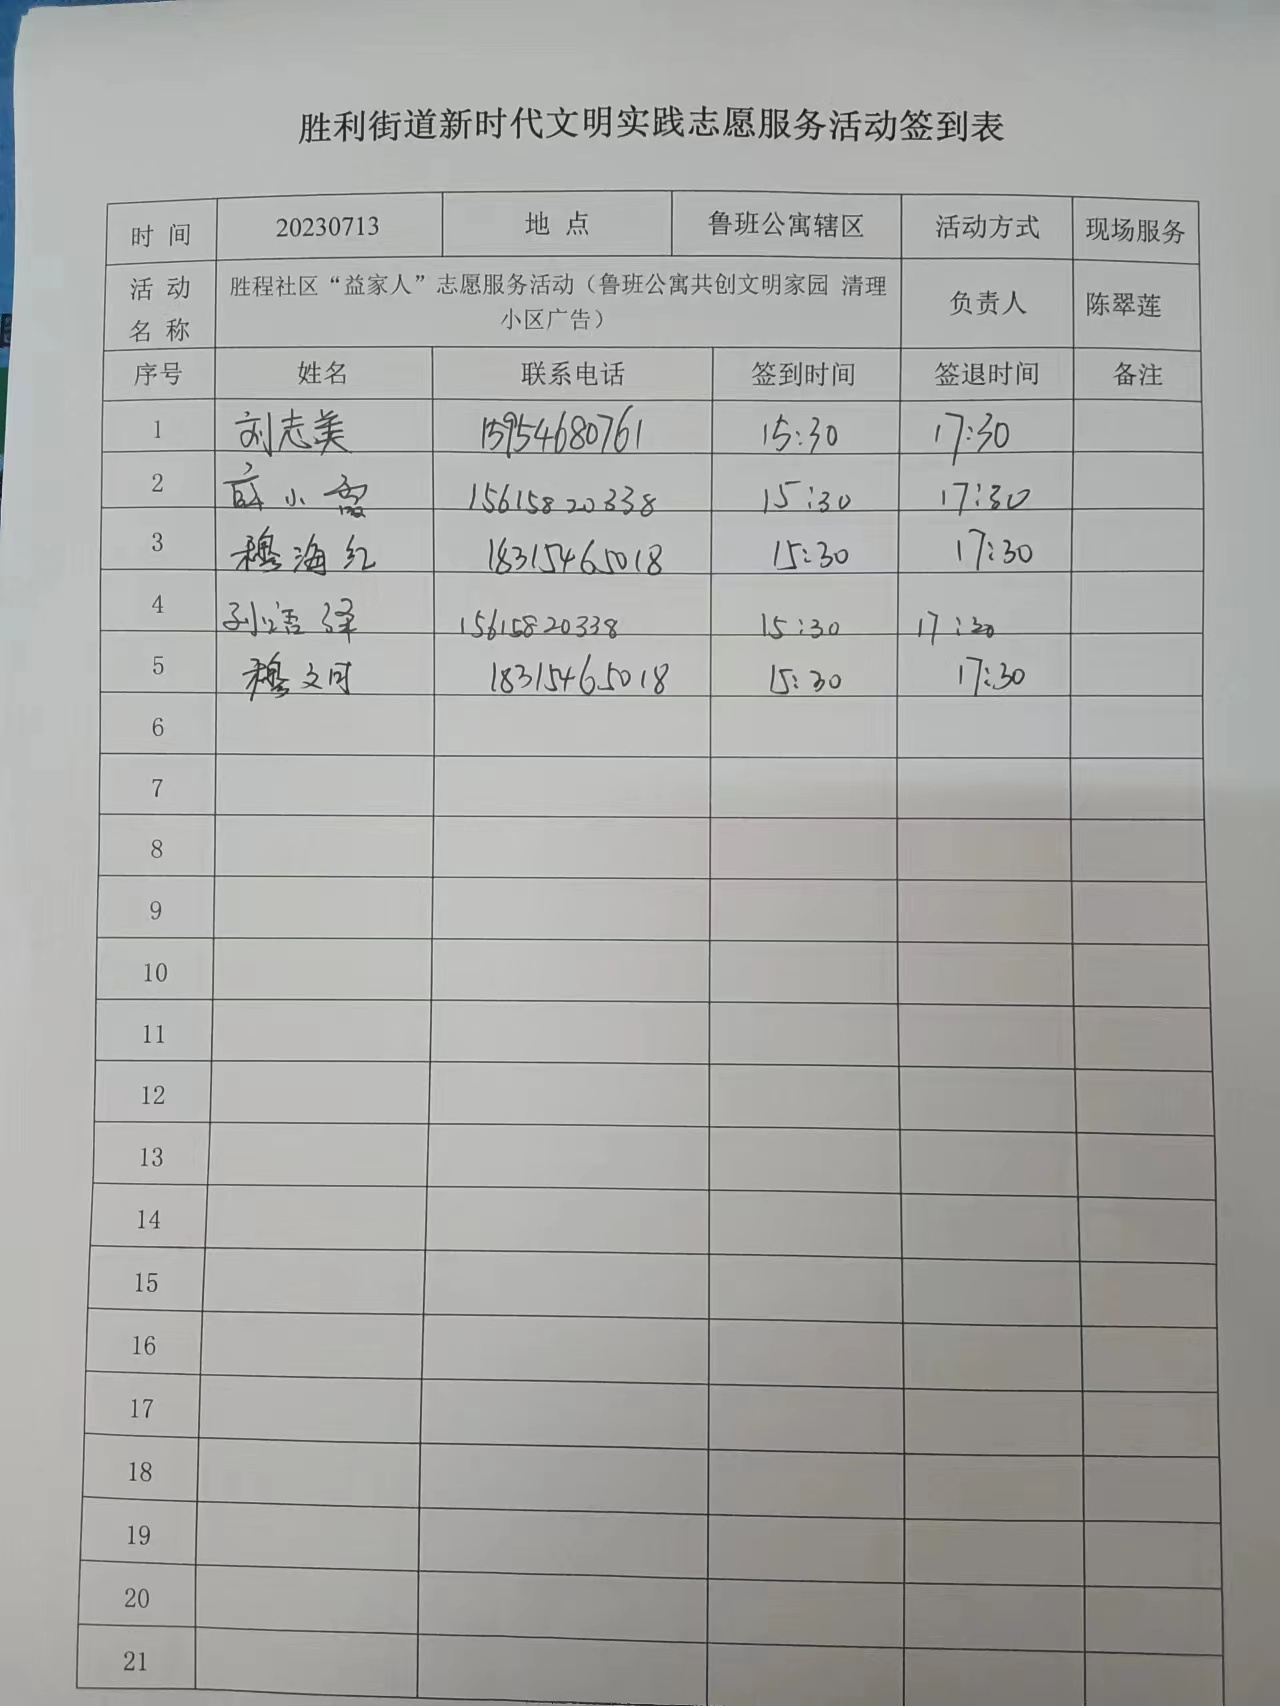 胜利街道新时代文明实践志愿服务活动签到表
时 间 20230713 地 点 鲁班公寓辖区 活动方式 现场服务
活 动 名 称 胜程社区“益家人”志愿服务活动（鲁班公寓共创文明家园 清理
小区广告） 负责人 陈翠莲
序号 姓名 联系电话 签到时间 签退时间 备注
1 刘志美 15954680761 15:30 17:30
2 小 15615820338 15:30 17:30
3 穆海红 18315465018 15:30 17:30
4 孙 15615820338 15:30 17:30
5 穆文 18315465018 15:30 17:30
6
7
8
9
10
11
12
13
14
15
16
17
18
19
20
21